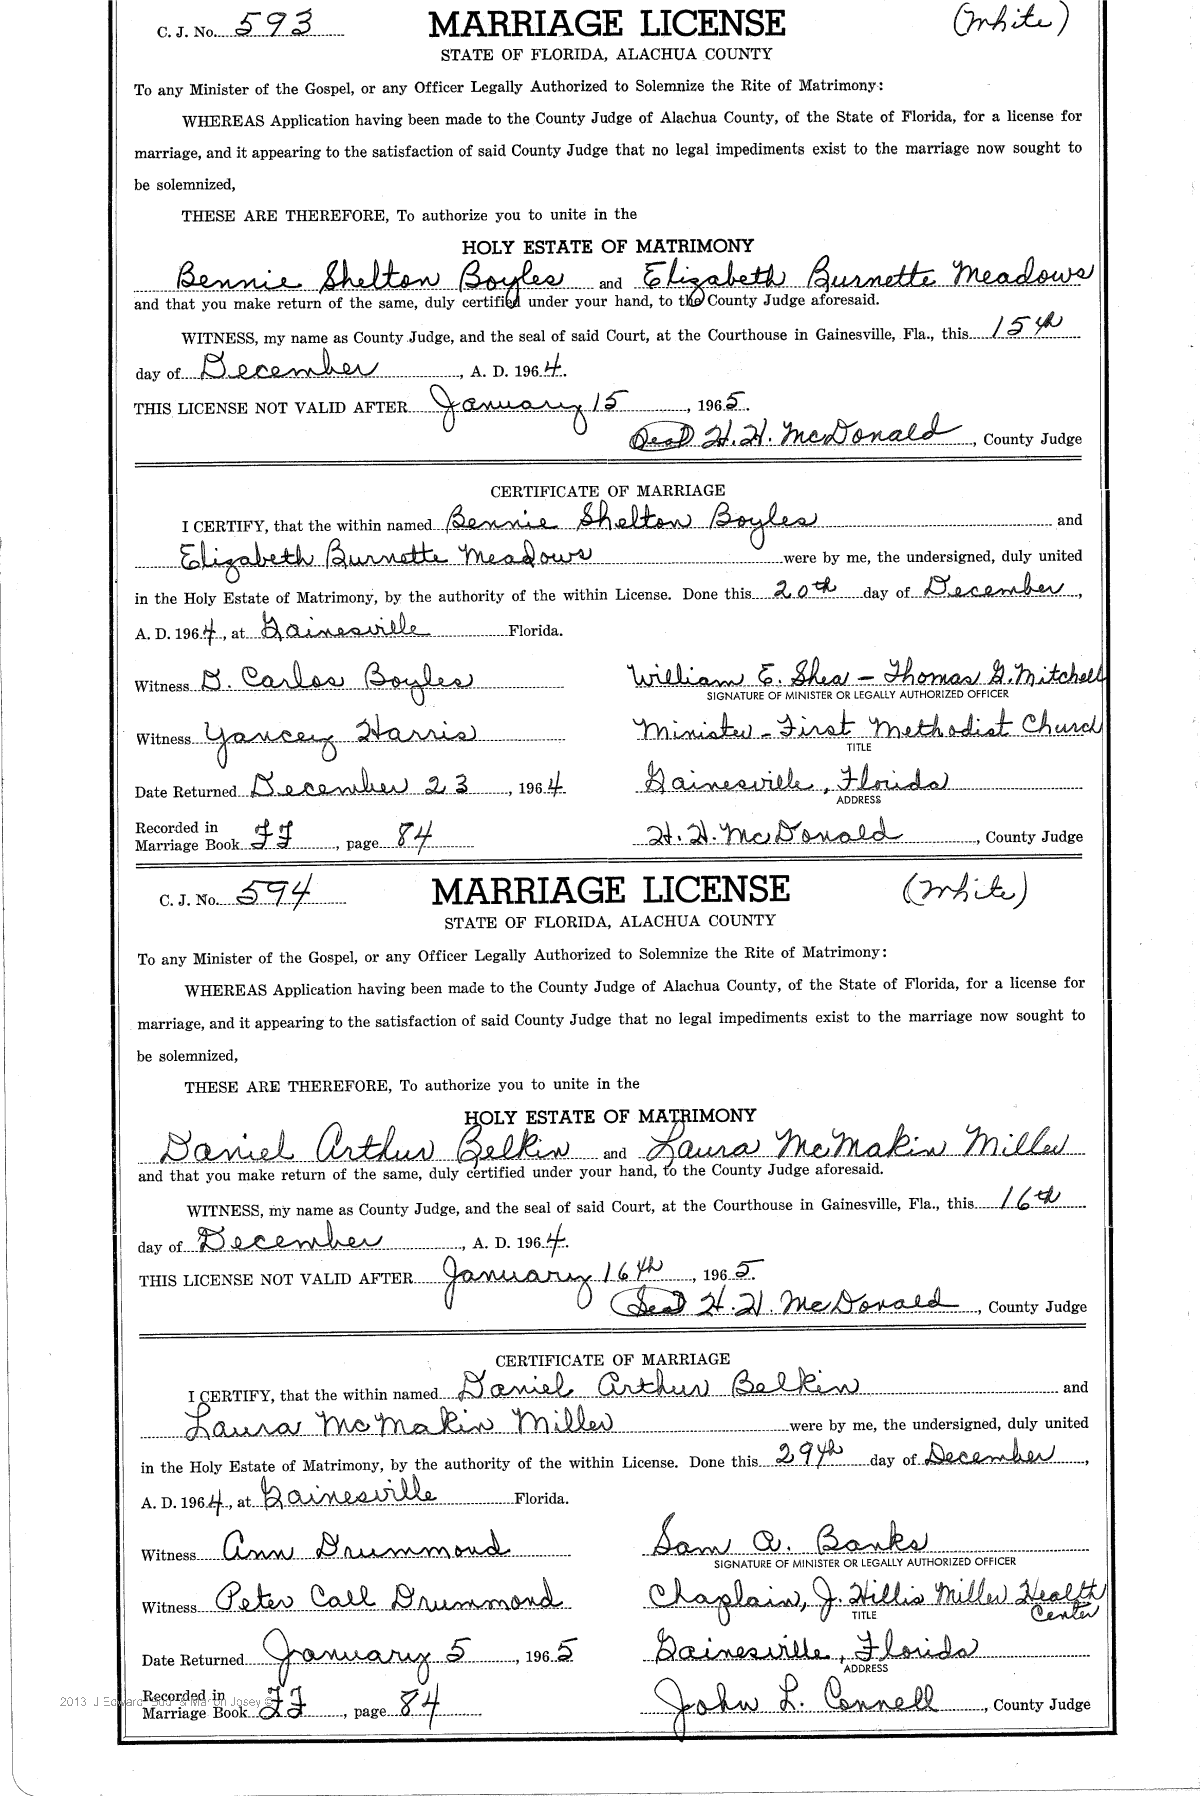 C. J. No. 593 MARRIAGE LICENSE (White)
STATE OF FLORIDA, ALACHUA COUNTY
To any Minister of the Gospel, or any Officer Legally Authorized to Solemnize the Rite of Matrimony:
WHEREAS Application having been made to the County Judge of Alachua County, of the State of Florida, for a license for
marriage, and it appearing to the satisfaction of said County Judge that no legal impediments exist to the marriage now sought to
be solemnized,
THESE ARE THEREFORE, To authorize you to unite in the
HOLY ESTATE OF MATRIMONY
Bennie Shelton Boyles and Elizabeth Burnette Meadows
and that you make return of the same, duly certified under your hand, to the County Judge aforesaid.
WITNESS, my name as County Judge, and the seal of said Court, at the Courthouse in Gainesville, Fla., this 15th
day of December, A. D. 1964.
THIS LICENSE NOT VALID AFTER January 15, 1965.
(Seal) H. H. McDonald, County Judge
CERTIFICATE OF MARRIAGE
I CERTIFY, that the within named Bennie Shelton Boyles and
Elizabeth Burnette Meadows were by me, the undersigned, duly united
in the Holy Estate of Matrimony, by the authority of the within License. Done this 20th day of December,
A. D. 1964, at Gainesville Florida.
Witness D. Carlos Boyles William E. Shea - Thomas G. Mitchell
SIGNATURE OF MINISTER OR LEGALLY AUTHORIZED OFFICER
Witness Yancey Harris Minister - First Methodist Church
TITLE
Date Returned December 23, 1964 Gainesville, Florida
ADDRESS
Recorded in
Marriage Book FF, page 84 H. H. McDonald, County Judge
C. J. No. 594 MARRIAGE LICENSE (White)
STATE OF FLORIDA, ALACHUA COUNTY
To any Minister of the Gospel, or any Officer Legally Authorized to Solemnize the Rite of Matrimony:
WHEREAS Application having been made to the County Judge of Alachua County, of the State of Florida, for a license for
marriage, and it appearing to the satisfaction of said County Judge that no legal impediments exist to the marriage now sought to
be solemnized,
THESE ARE THEREFORE, To authorize you to unite in the
HOLY ESTATE OF MATRIMONY
Daniel Arthur Belkin and Laura McMakin Miller
and that you make return of the same, duly certified under your hand, to the County Judge aforesaid.
WITNESS, my name as County Judge, and the seal of said Court, at the Courthouse in Gainesville, Fla., this 16th
day of December, A. D. 1964.
THIS LICENSE NOT VALID AFTER January 16th, 1965.
(Seal) H. H. McDonald, County Judge
CERTIFICATE OF MARRIAGE
I CERTIFY, that the within named Daniel Arthur Belkin and
Laura McMakin Miller were by me, the undersigned, duly united
in the Holy Estate of Matrimony, by the authority of the within License. Done this 29th day of December,
A. D. 1964, at Gainesville Florida.
Witness Ann Drummond Sam A. Banks
SIGNATURE OF MINISTER OR LEGALLY AUTHORIZED OFFICER
Witness Peter Call Drummond Chaplain, J. Hillis Miller Health Center
TITLE
Date Returned January 5, 1965 Gainesville, Florida
ADDRESS
Recorded in
Marriage Book FF, page 84 John L. Connell, County Judge
2013 J Josey ©